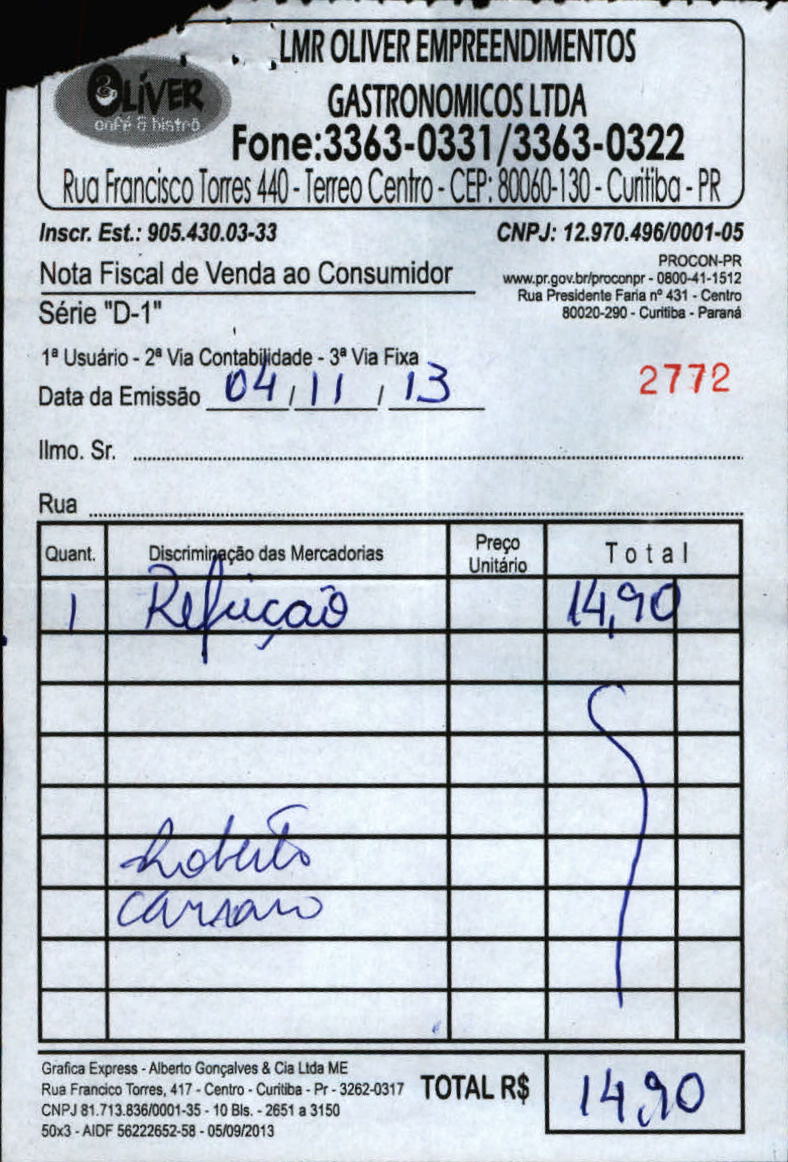 LMR OLIVER EMPREENDIMENTOS
GASTRONOMICOS LTDA
OLÍVER
café & bistrô
Fone:3363-0331/3363-0322
Rua Francisco Torres 440 - Terreo Centro - CEP: 80060-130 - Curitiba - PR
Inscr. Est.: 905.430.03-33 CNPJ: 12.970.496/0001-05
Nota Fiscal de Venda ao Consumidor
Série "D-1"
PROCON-PR
www.pr.gov.br/proconpr - 0800-41-1512
Rua Presidente Faria nº 431 - Centro
80020-290 - Curitiba - Paraná
1ª Usuário - 2ª Via Contabilidade - 3ª Via Fixa
Data da Emissão 04/11/13
2772
Ilmo. Sr.
Rua
Quant. Discriminação das Mercadorias Preço Unitário Total
1 Refeição 14,90
Roberto
Carraro
Grafica Express - Alberto Gonçalves & Cia Ltda ME
Rua Francico Torres, 417 - Centro - Curitiba - Pr - 3262-0317
CNPJ 81.713.836/0001-35 - 10 Bls. - 2651 a 3150
50x3 - AIDF 56222652-58 - 05/09/2013
TOTAL R$ 14,90